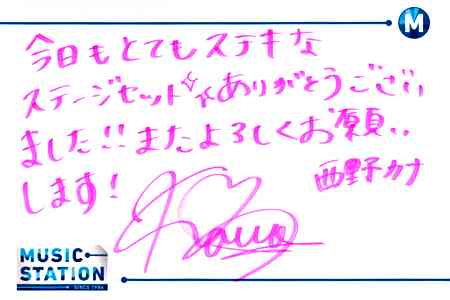 M
今日もとてもステキな
ステージセット☆☆ありがとうござい
ました!!またよろしくお願い
します!
西野カナ
Kana
MUSIC
STATION
SINCE 1986